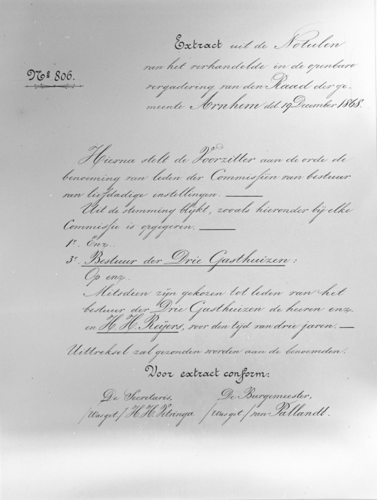 Extract uit de Notulen
van het verhandelde in de openbare
vergadering van den Raad der ge-
meente Arnhem dd 19 December 1868.
No 806.
Hierna stelt de Voorzitter aan de orde de
benoeming van leden der Commissiën van bestuur
van liefdadige instellingen.
Uit de stemming blijkt, zooals hieronder bij elke
Commissie is opgegeven.
1o. Enz.
3o. Bestuur der Drie Gasthuizen:
Op enz.
Mitsdien zijn gekozen tot leden van het
bestuur der Drie Gasthuizen de heeren enz.
en H. H. Reijers, voor den tijd van drie jaren.
Uittreksel zal gezonden worden aan de benoemden.
Voor extract conform:
De Secretaris, De Burgemeester,
/Wasget/ H. H. Petringa /Wasget/ van Pallandt.